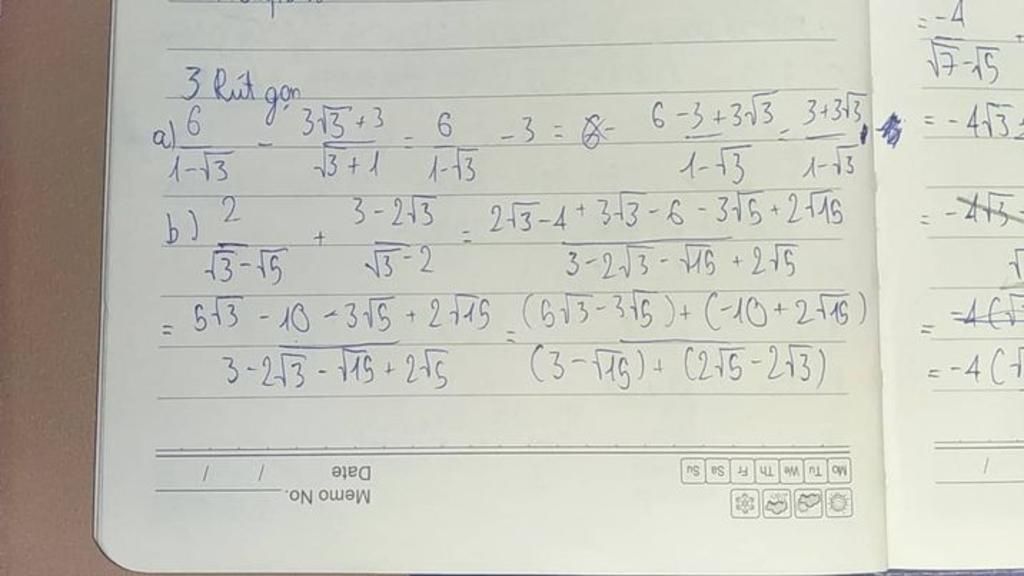 3 Rút gọn
a) 6/(1-√3) - (3√3+3)/(√3+1) = 6/(1-√3) - 3 = (6-3+3√3)/(1-√3) = (3+3√3)/(1-√3)
b) 2/(√3-√5) + (3-2√3)/(√3-2) = (2√3-4+3√3-6-3√5+2√15)/(3-2√3-√15+2√5)
= (5√3-10-3√5+2√15)/(3-2√3-√15+2√5) = ((5√3-3√5)+(-10+2√15))/((3-√15)+(2√5-2√3))
Memo No.
Date / /
Mo Tu We Th Fr Sa Su
= -4/(√7-√5)
= -4√3
= -4√3
= -4(√
= -4(√
/